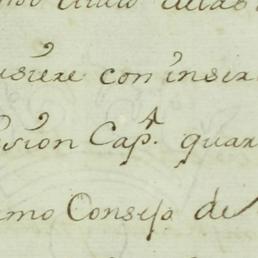 usiere con inser
ision Cap.ª quar
mo Consejo de